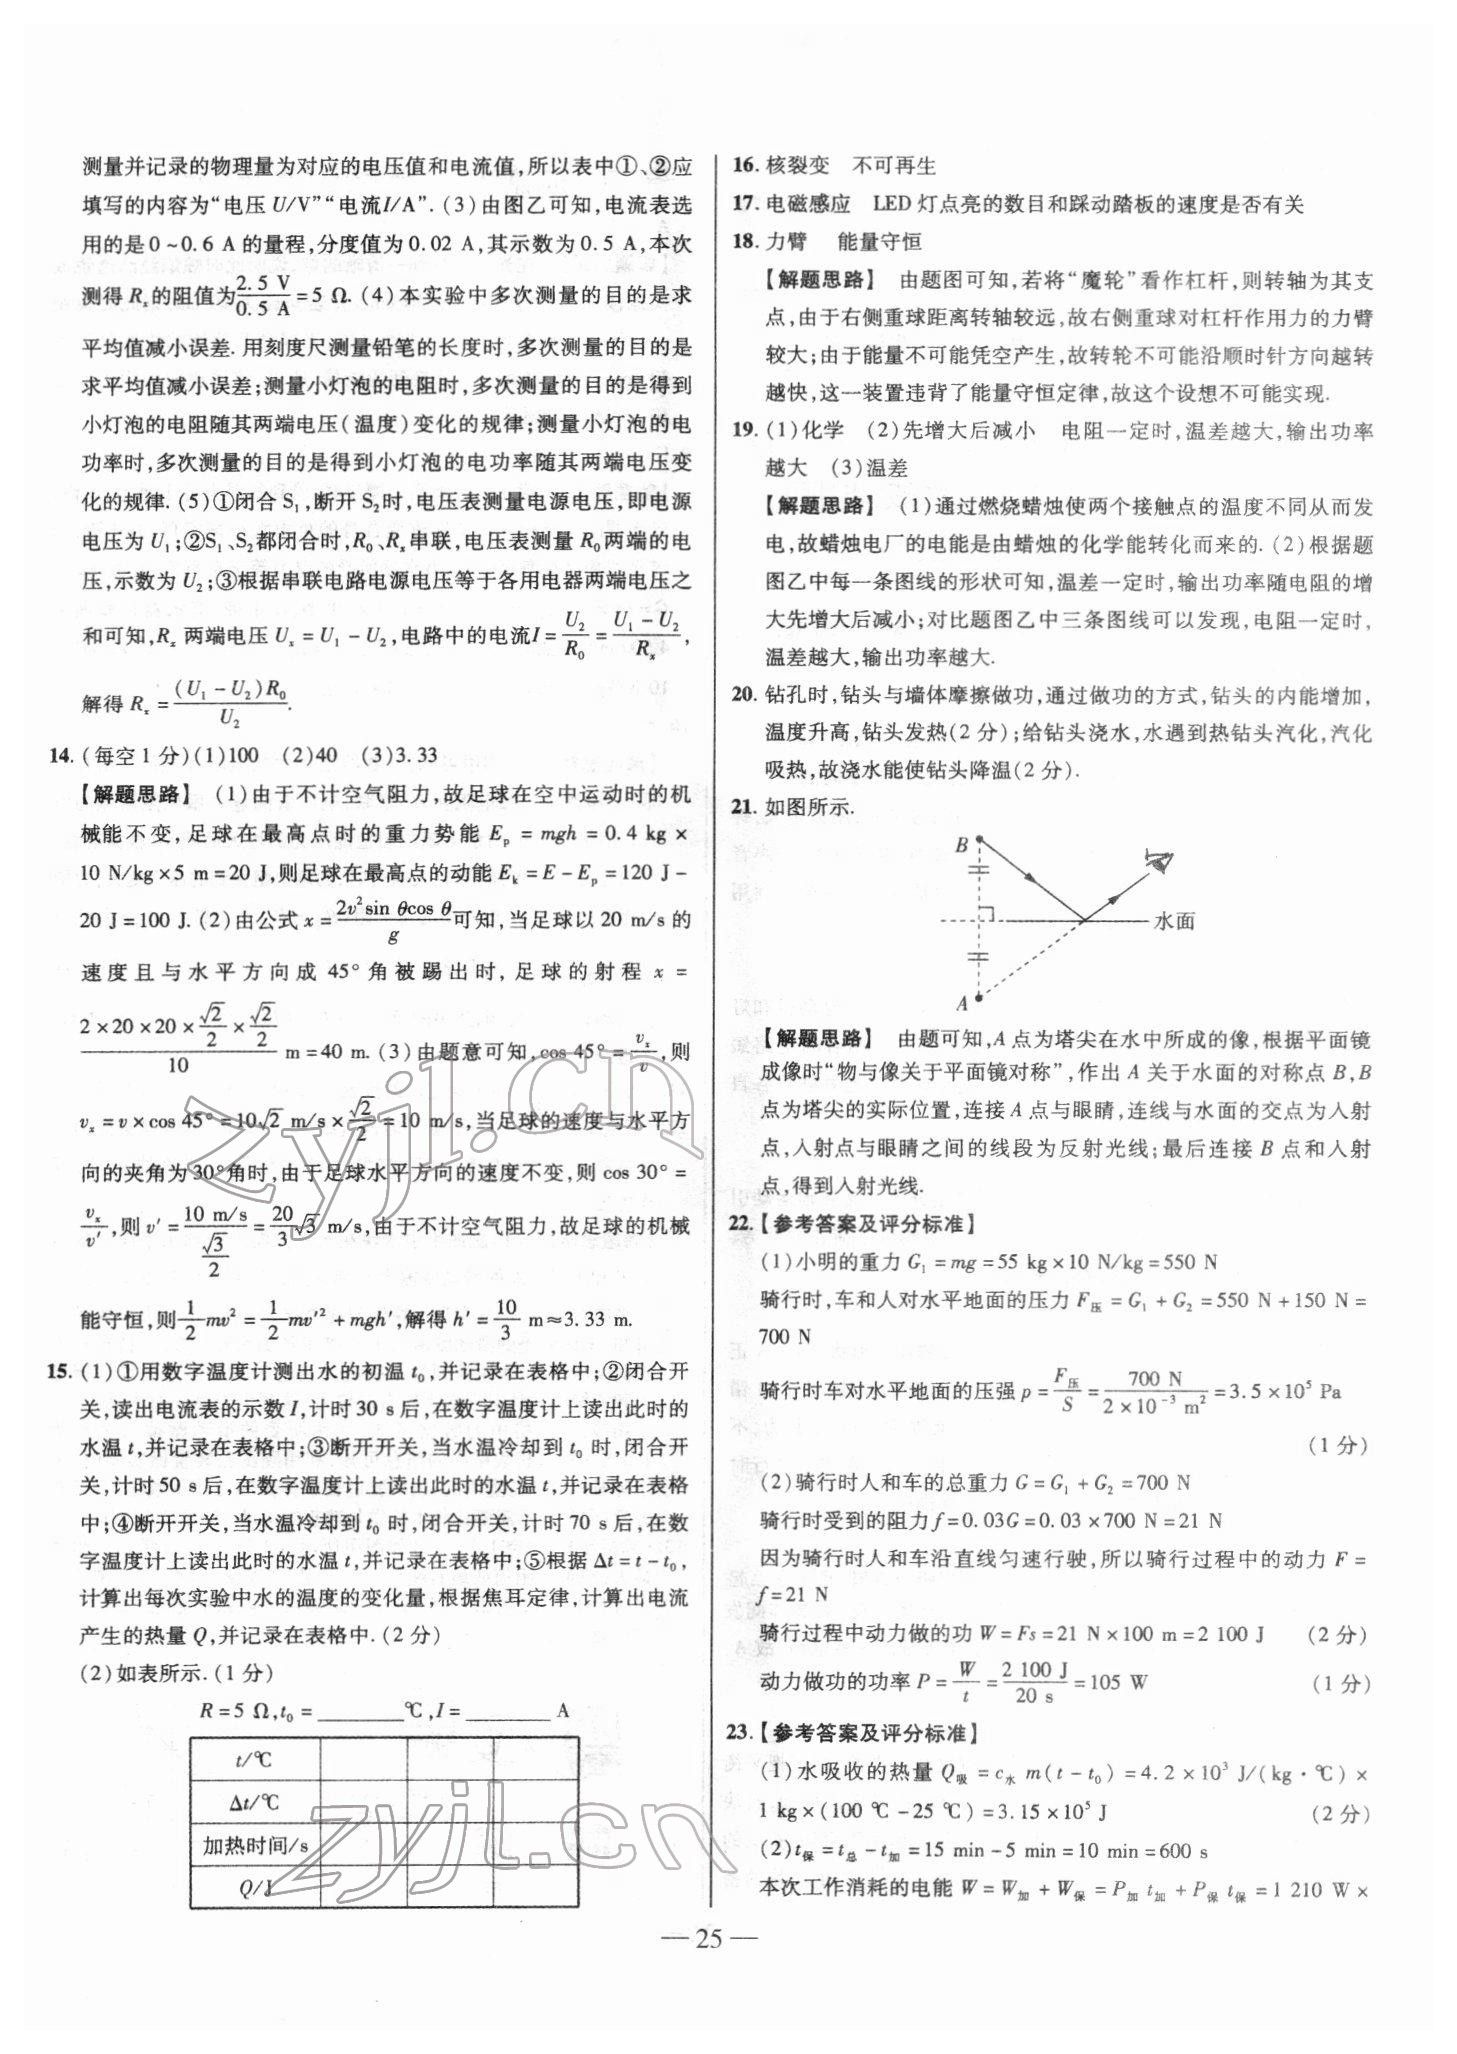 测量并记录的物理量为对应的电压值和电流值,所以表中①、②应
填写的内容为“电压 U/V”“电流I/A”. (3)由图乙可知,电流表选
用的是 0 ~ 0.6 A 的量程,分度值为 0.02 A,其示数为 0.5 A,本次
测得 Rₓ 的阻值为 2.5 V/0.5 A = 5 Ω. (4)本实验中多次测量的目的是求
平均值减小误差. 用刻度尺测量铅笔的长度时,多次测量的目的是
求平均值减小误差;测量小灯泡的电阻时,多次测量的目的是得到
小灯泡的电阻随其两端电压(温度)变化的规律;测量小灯泡的电
功率时,多次测量的目的是得到小灯泡的电功率随其两端电压变
化的规律. (5)①闭合 S₁,断开 S₂时,电压表测量电源电压,即电源
电压为 U₁;②S₁、S₂都闭合时,R₀、Rₓ串联,电压表测量 R₀两端的电
压,示数为 U₂;③根据串联电路电源电压等于各用电器两端电压之
和可知,Rₓ 两端电压 Uₓ = U₁ - U₂,电路中的电流I = U₂/R₀ = (U₁ - U₂)/Rₓ,
解得 Rₓ = (U₁ - U₂)R₀/U₂.
14. (每空 1 分)(1)100 (2)40 (3)3.33
【解题思路】 (1)由于不计空气阻力,故足球在空中运动时的机
械能不变,足球在最高点时的重力势能 Eₚ = mgh = 0.4 kg ×
10 N/kg × 5 m = 20 J,则足球在最高点的动能 Eₖ = E - Eₚ = 120 J -
20 J = 100 J. (2)由公式 x = 2v²sin θcos θ/g 可知,当足球以 20 m/s 的
速度且与水平方向成 45° 角被踢出时,足球的射程 x =
(2 × 20 × 20 × √2/2 × √2/2)/10 m = 40 m. (3)由题意可知,cos 45° = vₓ/v,则
vₓ = v × cos 45° = 10√2 m/s × √2/2 = 10 m/s,当足球的速度与水平方
向的夹角为 30°角时,由于足球水平方向的速度不变,则 cos 30° =
vₓ/v′,则 v′ = 10 m/s/(√3/2) = 20/3 √3 m/s,由于不计空气阻力,故足球的机械
能守恒,则 1/2 mv² = 1/2 mv′² + mgh′,解得 h′ = 10/3 m ≈ 3.33 m.
15. (1)①用数字温度计测出水的初温 t₀,并记录在表格中;②闭合开
关,读出电流表的示数 I,计时 30 s 后,在数字温度计上读出此时的
水温 t,并记录在表格中;③断开开关,当水温冷却到 t₀ 时,闭合开
关,计时 50 s 后,在数字温度计上读出此时的水温 t,并记录在表格
中;④断开开关,当水温冷却到 t₀ 时,闭合开关,计时 70 s 后,在数
字温度计上读出此时的水温 t,并记录在表格中;⑤根据 Δt = t - t₀,
计算出每次实验中水的温度的变化量,根据焦耳定律,计算出电流
产生的热量 Q,并记录在表格中. (2 分)
(2)如表所示. (1 分)
R = 5 Ω,t₀ = ________℃,I = ________ A
t/℃
Δt/℃
加热时间/s
Q/J
16. 核裂变 不可再生
17. 电磁感应 LED 灯点亮的数目和踩动踏板的速度是否有关
18. 力臂 能量守恒
【解题思路】 由题图可知,若将“魔轮”看作杠杆,则转轴为其支
点,由于右侧重球距离转轴较远,故右侧重球对杠杆作用力的力臂
较大;由于能量不可能凭空产生,故转轮不可能沿顺时针方向越转
越快,这一装置违背了能量守恒定律,故这个设想不可能实现.
19. (1)化学 (2)先增大后减小 电阻一定时,温差越大,输出功率
越大 (3)温差
【解题思路】 (1)通过燃烧蜡烛使两个接触点的温度不同从而发
电,故蜡烛电厂的电能是由蜡烛的化学能转化而来的. (2)根据题
图乙中每一条图线的形状可知,温差一定时,输出功率随电阻的增
大先增大后减小;对比题图乙中三条图线可以发现,电阻一定时,
温差越大,输出功率越大.
20. 钻孔时,钻头与墙体摩擦做功,通过做功的方式,钻头的内能增加,
温度升高,钻头发热(2 分);给钻头浇水,水遇到热钻头汽化,汽化
吸热,故浇水能使钻头降温(2 分).
21. 如图所示.
B
水面
A
【解题思路】 由题可知,A 点为塔尖在水中所成的像,根据平面镜
成像时“物与像关于平面镜对称”,作出 A 关于水面的对称点 B,B
点为塔尖的实际位置,连接 A 点与眼睛,连线与水面的交点为入射
点,入射点与眼睛之间的线段为反射光线;最后连接 B 点和入射
点,得到入射光线.
22. 【参考答案及评分标准】
(1)小明的重力 G₁ = mg = 55 kg × 10 N/kg = 550 N
骑行时,车和人对水平地面的压力 F压 = G₁ + G₂ = 550 N + 150 N =
700 N
骑行时车对水平地面的压强 p = F压/S = 700 N/(2 × 10⁻³ m²) = 3.5 × 10⁵ Pa
(1 分)
(2)骑行时人和车的总重力 G = G₁ + G₂ = 700 N
骑行时受到的阻力 f = 0.03G = 0.03 × 700 N = 21 N
因为骑行时人和车沿直线匀速行驶,所以骑行过程中的动力 F =
f = 21 N
骑行过程中动力做的功 W = Fs = 21 N × 100 m = 2 100 J (2 分)
动力做功的功率 P = W/t = 2 100 J/20 s = 105 W (1 分)
23. 【参考答案及评分标准】
(1)水吸收的热量 Q吸 = c水 m(t - t₀) = 4.2 × 10³ J/(kg · ℃) ×
1 kg × (100 ℃ - 25 ℃) = 3.15 × 10⁵ J (2 分)
(2)t保 = t总 - t加 = 15 min - 5 min = 10 min = 600 s
本次工作消耗的电能 W = W加 + W保 = P加 t加 + P保 t保 = 1 210 W ×
— 25 —
zyjl.cn
zyjl.cn